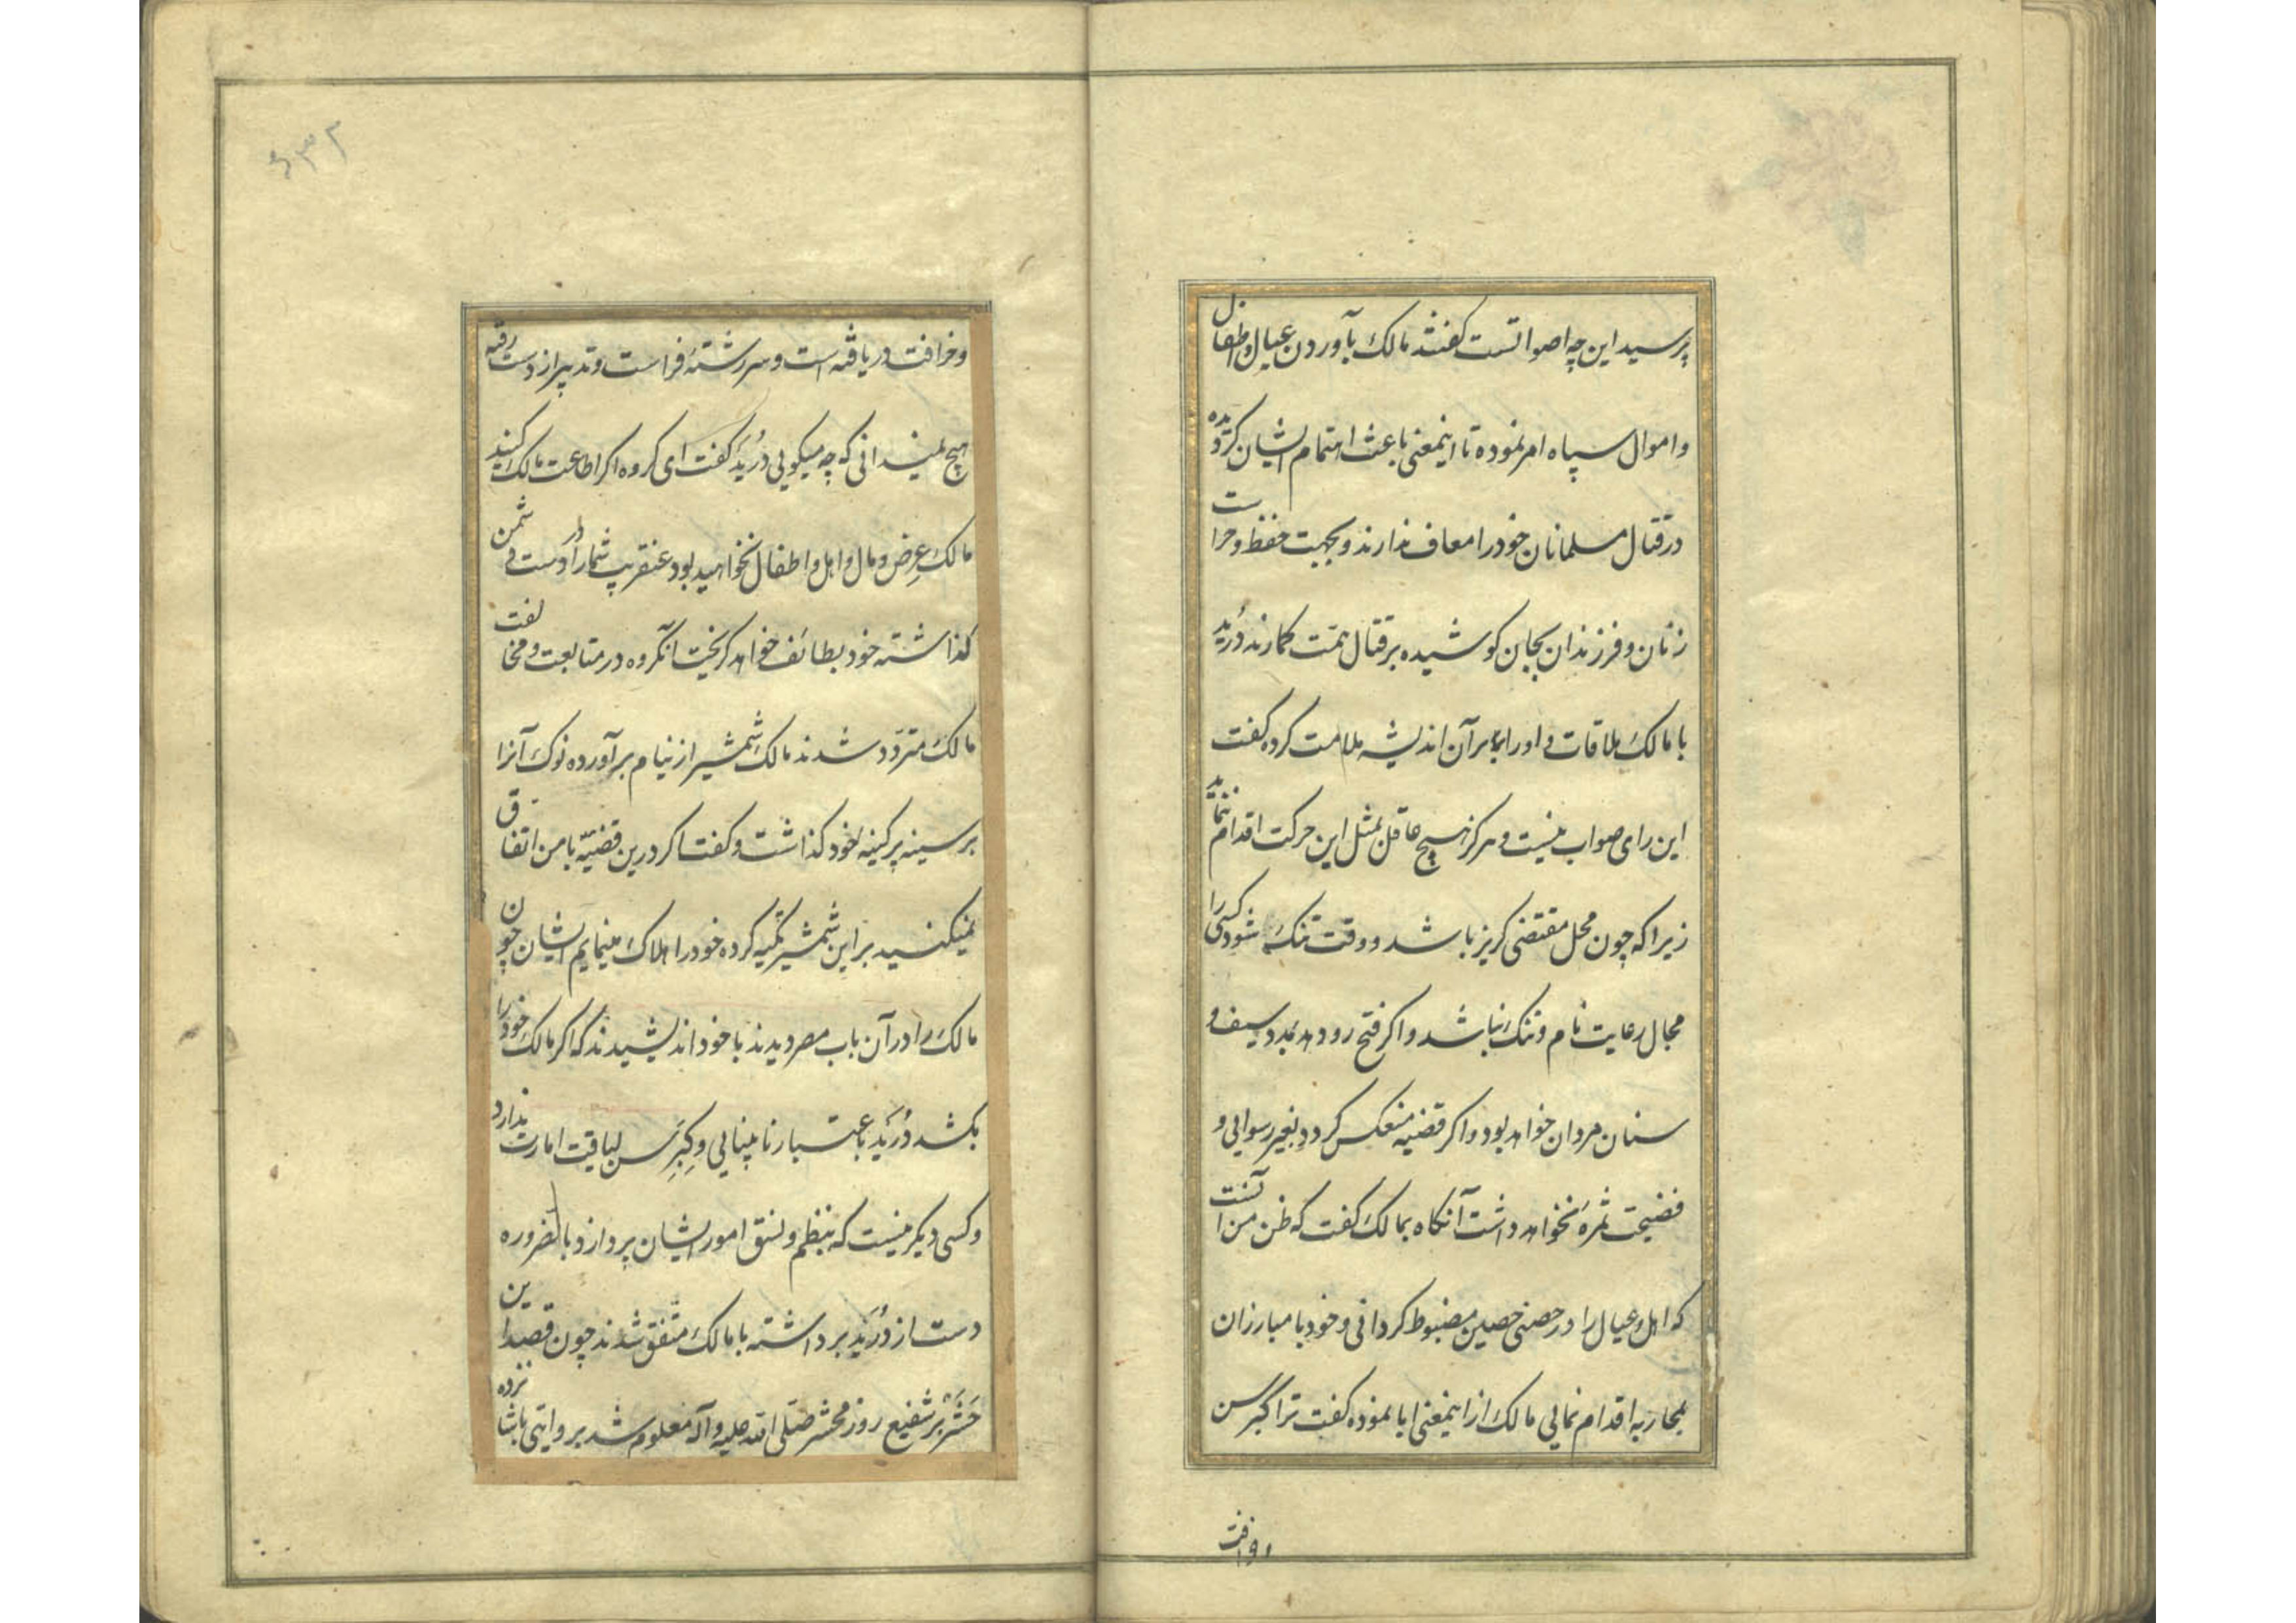 پرسید این چه اصواتست گفتند مالک بآوردن عیال و اطفال
و اموال سپاه امر نموده تا اینمعنی باعث اهتمام ایشان گردیده
در قتال مسلمانان خود را معاف ندارند و بجهت حفظ و حراست
زنان و فرزندان بجان کوشیده بر قتال همّت گمارند دُرَید
با مالک ملاقات و او را بر آن اندیشه ملامت کرده گفت
این رای صواب نیست و هرگز هیچ عاقل بمثل این حرکت اقدام ننماید
زیرا که چون محل مقتضی گریز باشد و وقت تنگ شود کسی را
مجال رعایت نام و ننگ نباشد و اگر فتح رو دهد بمدد سیف و
سنان مردان خواهد بود و اگر قضیه منعکس گردد بغیر رسوایی و
فضیحت ثمره نخواهد داشت آنگاه بمالک گفت که ظن من آنست
که اهل و عیال را در حصنی حصین مضبوط گردانی و خود با مبارزان
بمحاربه اقدام نمایی مالک از اینمعنی ابا نموده گفت ترا کبر سن
و خرافت
و خرافت دریافته است و سررشتهٔ فراست و تدبیر از دست رفته
هیچ نمیدانی که چه میگویی دُرَید گفت ای گروه اگر اطاعت مالک کنید
مالک عِرض و مال و اهل و اطفال نخواهید بود عنقریب شما را در دست دشمن
گذاشته خود بطائف خواهد گریخت آنگروه در متابعت و مخالفت
مالک متردّد شدند مالک شمشیر از نیام برآورده نوک آنرا
بر سینه پرکینه خود گذاشت و گفت اگر درین قضیّه با من اتفاق
نمیکنید بر این شمشیر تکیه کرده خود را هلاک مینمایم ایشان چون
مالک را در آن باب مصر دیدند با خود اندیشیدند که اگر مالک خود را
بکشد دُرَید باعتبار نابینایی و کِبَرِ سن لیاقت امارت ندارد
و کسی دیگر نیست که بنظم و نسق امور ایشان پردازد بالضروره
دست از دُرَید برداشته با مالک متّفق شدند چون قصد این
حَشَر بر شفیع روز محشر صَلّی الله علیه و آله معلوم شد بروایتی با شانزده